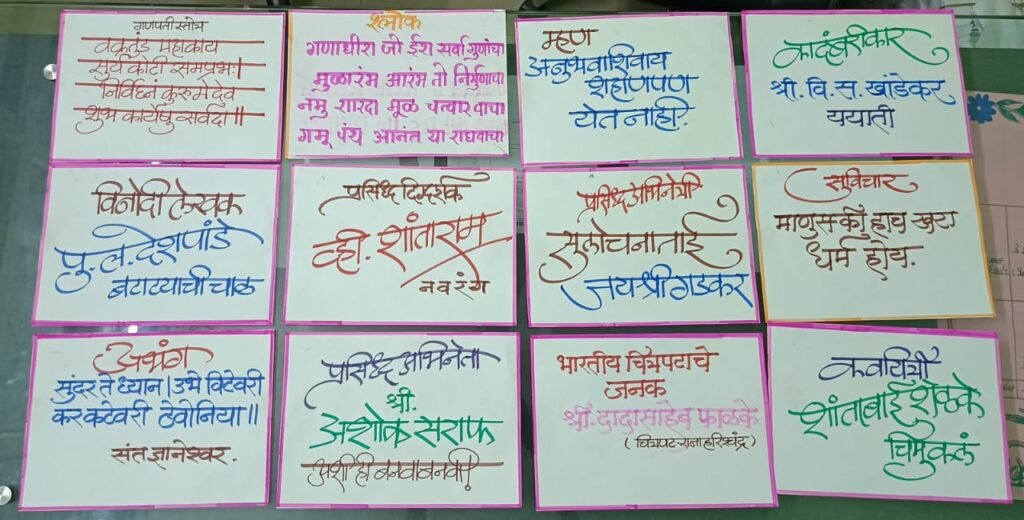 गणपती स्तोत्र
वक्रतुंड महाकाय
सूर्य कोटी समप्रभः।
निर्विघ्नं कुरु मे देव
शुभ कार्येषु सर्वदा॥
श्लोक
गणाधीश जो ईश सर्वा गुणांचा
मुळारंभ आरंभ तो निर्गुणाचा
नमु शारदा मूळ चत्वार वाचा
गमू पंथ आनंत या राघवाचा
म्हण
अनुभवाशिवाय
शहाणपण
येत नाही.
कादंबरीकार
श्री. वि. स. खांडेकर
ययाती
विनोदी लेखक
पु. ल. देशपांडे
बटाट्याची चाळ
प्रसिद्ध दिग्दर्शक
व्ही. शांताराम
नवरंग
प्रसिद्ध अभिनेत्री
सुलोचनाताई
जयश्री गडकर
सुविचार
माणुसकी हाच खरा
धर्म होय.
अभंग
सुंदर ते ध्यान। उभे विटेवरी
कर कटेवरी ठेवोनिया॥
संत ज्ञानेश्वर.
प्रसिद्ध अभिनेता
श्री.
अशोक सराफ
अशी ही बनवाबनवी!
भारतीय चित्रपटाचे
जनक
श्री. दादासाहेब फाळके
(चित्रपट-राजा हरिश्चंद्र)
कवयित्री
शांताबाई शेळके
चिमुकलं